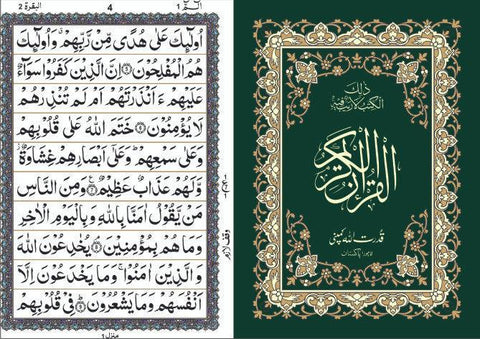 البقرة ٢
4
الٓمّٓ ١
اُولٰٓئِكَ عَلٰى هُدًى مِّنْ رَّبِّهِمْ ۙ وَاُولٰٓئِكَ
هُمُ الْمُفْلِحُوْنَ ۝ اِنَّ الَّذِيْنَ كَفَرُوْا سَوَآءٌ
عَلَيْهِمْ ءَاَنْذَرْتَهُمْ اَمْ لَمْ تُنْذِرْهُمْ
لَا يُؤْمِنُوْنَ ۝ خَتَمَ اللّٰهُ عَلٰى قُلُوْبِهِمْ
وَعَلٰى سَمْعِهِمْ ؕ وَعَلٰٓى اَبْصَارِهِمْ غِشَاوَةٌ ؗ
وَّلَهُمْ عَذَابٌ عَظِيْمٌ ۝ وَمِنَ النَّاسِ
مَنْ يَّقُوْلُ اٰمَنَّا بِاللّٰهِ وَبِالْيَوْمِ الْاٰخِرِ
وَمَا هُمْ بِمُؤْمِنِيْنَ ۝ يُخٰدِعُوْنَ اللّٰهَ
وَالَّذِيْنَ اٰمَنُوْا ۚ وَمَا يَخْدَعُوْنَ اِلَّاۤ
اَنْفُسَهُمْ وَمَا يَشْعُرُوْنَ ۝ فِيْ قُلُوْبِهِمْ
وقف لازم
منزل ١
ذٰلك
الكتب لا ريب فيه
القرآن الكريم
قدرت اللہ کمپنی
لاہور پاکستان